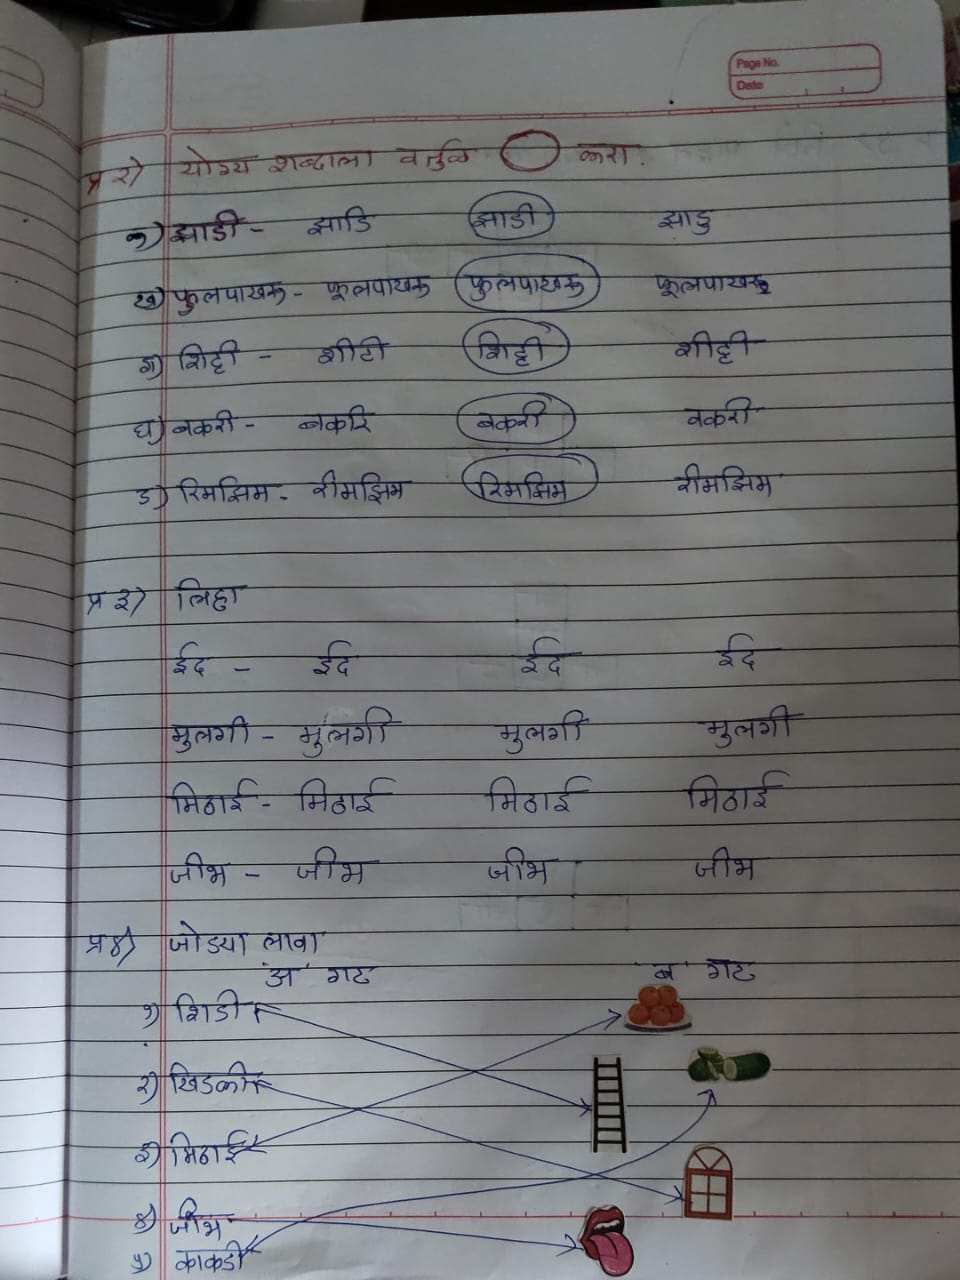 Page No.
Date
प्र २) योग्य शब्दाला वर्तुळ करा.
क) झाडी - झाडि झाडी झाडु
ख) फुलपाखरू - फूलपाखरू फुलपाखरू फूलपाखरु
ग) शिट्टी - शीटी शिट्टी शीट्टी
घ) बकरी - बकरि बकरी वकरी
ड) रिमझिम - रीमझिम रिमझिम रीमझिम
प्र ३) लिहा
ईद - ईद ईद ईद
मुलगी - मुलगी मुलगी मुलगी
मिठाई - मिठाई मिठाई मिठाई
जीभ - जीभ जीभ जीभ
प्र ४) जोडया लावा
'अ' गट 'ब' गट
१) शिडी
२) खिडकी
३) मिठाई
४) जीभ
५) काकडी